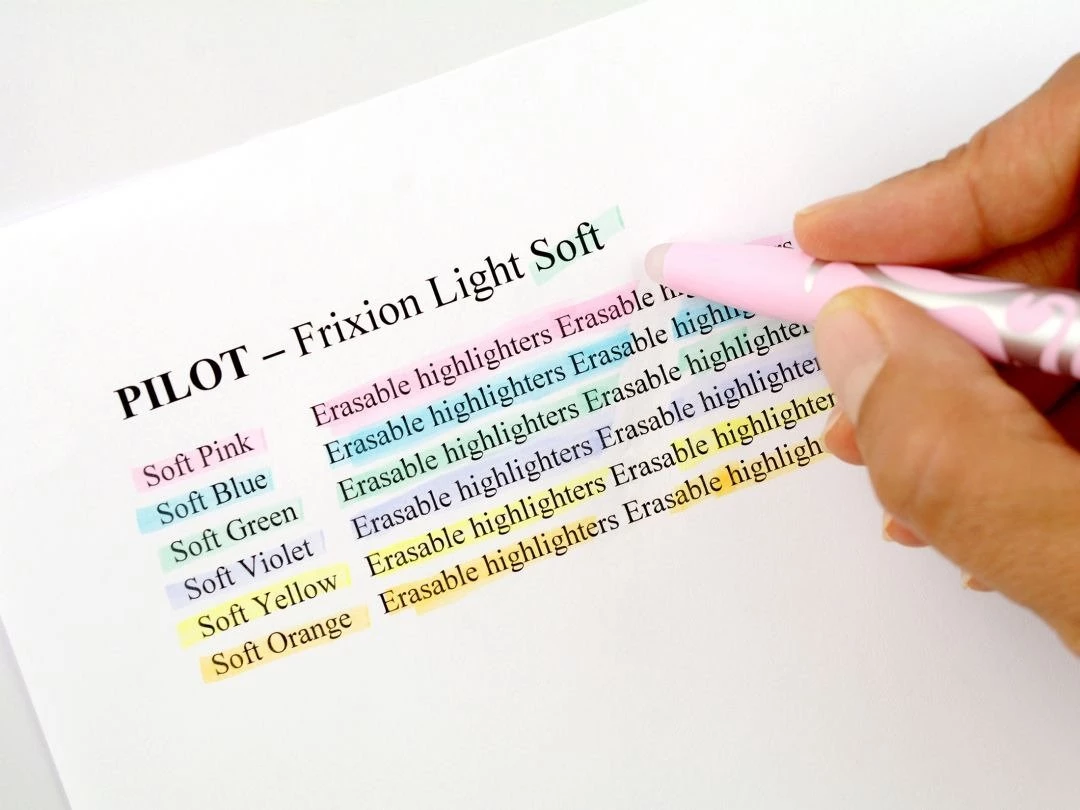 PILOT – Frixion Light Soft
Soft Pink
Soft Blue
Soft Green
Soft Violet
Soft Yellow
Soft Orange
Erasable highlighters Erasable
Erasable highlighters Erasable highlig
Erasable highlighters Erasable highlighter
Erasable highlighters Erasable highlighter
Erasable highlighters Erasable highlighter
Erasable highlighters Erasable highligh